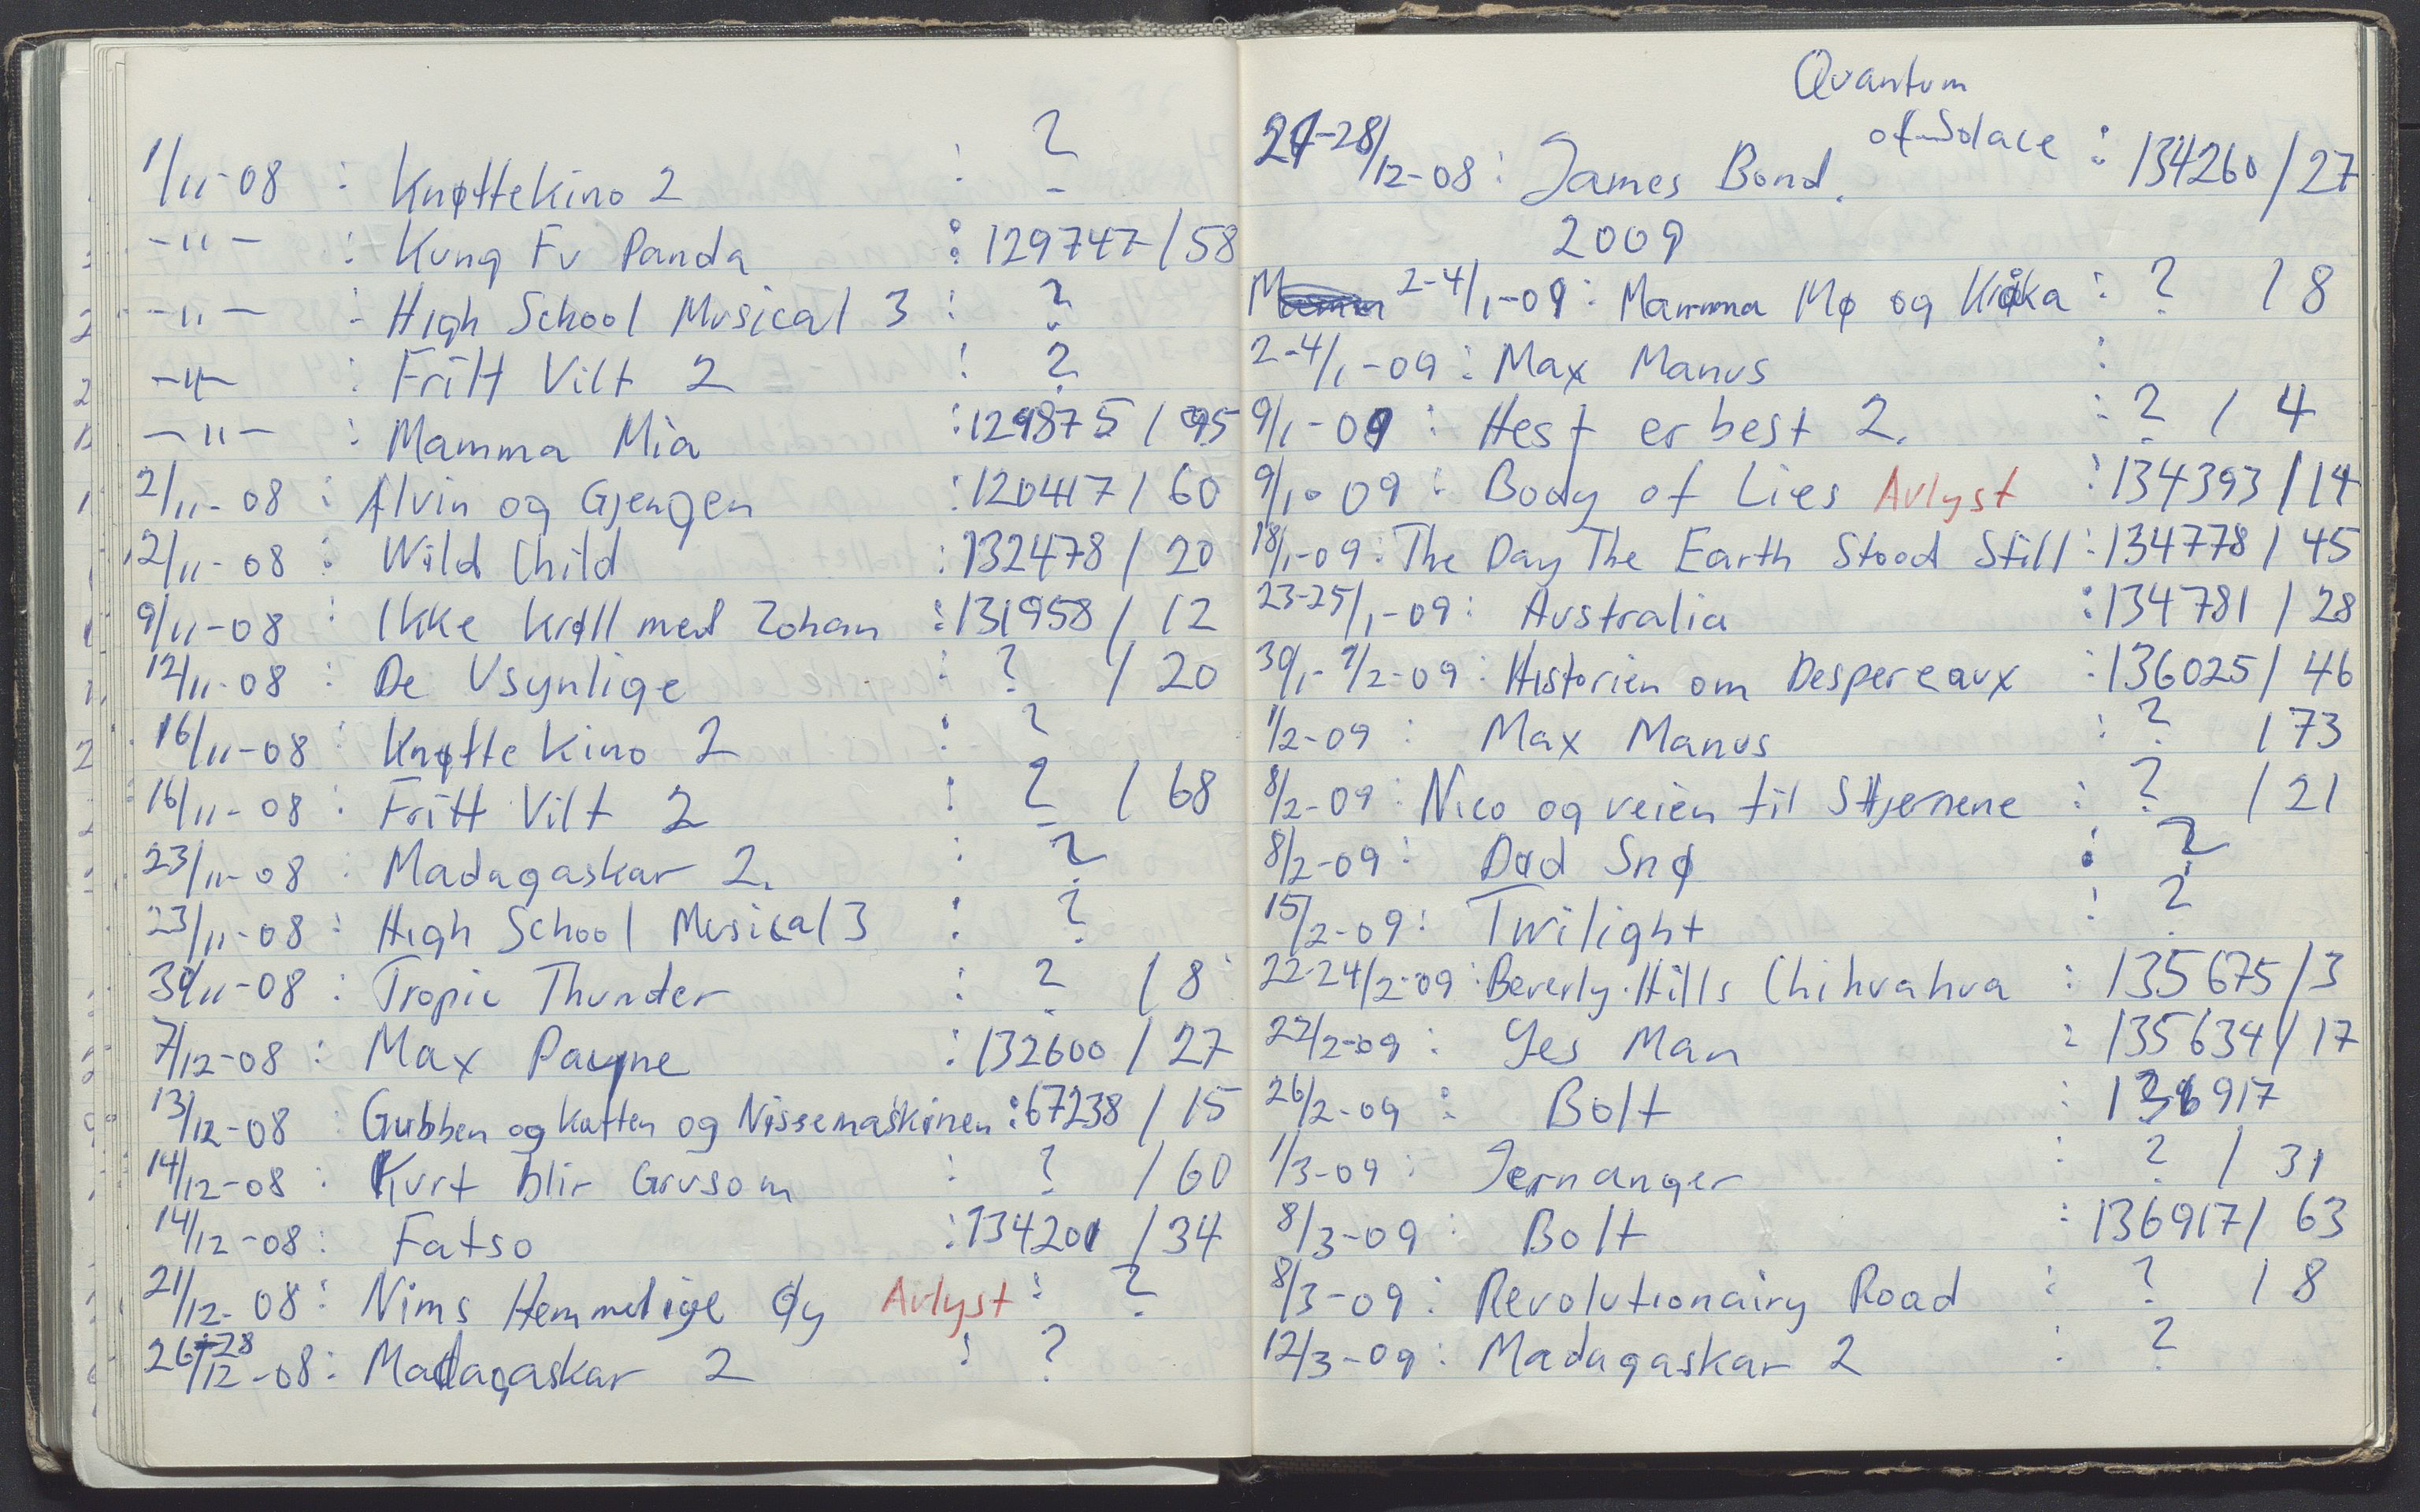 1/11-08 : Knøttekino 2 : ?
-"- : Kung Fu Panda : 129747/58
-"- : High School Musical 3 : ?
-"- : Fritt Vilt 2 : ?
-"- : Mamma Mia : 129875/95
2/11-08 : Alvin og Gjengen : 120417/60
2/11-08 : Wild Child : 132478/20
9/11-08 : Ikke krøll med Zohan : 131958/12
12/11-08 : De Usynlige : ? /20
16/11-08 : Knøtte Kino 2 : ?
16/11-08 : Fritt Vilt 2 : ? /68
23/11-08 : Madagaskar 2. : ?
23/11-08 : High School Musical 3 : ?
30/11-08 : Tropic Thunder : ? /8
7/12-08 : Max Payne : 132600/27
13/12-08 : Gubben og Katten og Nissemaskinen : 67238/15
14/12-08 : Kurt blir Grusom : ? /60
14/12-08 : Fatso : 134201/34
21/12-08 : Nims Hemmelige Øy Avlyst : ?
26-28/12-08 : Madagaskar 2 : ?
Quantum
of Solace
27-28/12-08 : James Bond. : 134260/27
2009
2-4/1-09 : Mamma Mø og Kråka : ? /8
2-4/1-09 : Max Manus :
9/1-09 : Hest er best 2. : ? /4
9/1-09 : Body of Lies Avlyst : 134393/14
18/1-09 : The Day The Earth Stood Still : 134778/45
23-25/1-09 : Australia : 134781/28
30/1-1/2-09 : Historien om Despereaux : 136025/46
1/2-09 : Max Manus : ? /73
8/2-09 : Nico og veien til Stjernene : ? /21
8/2-09 : Død Snø : ?
15/2-09 : Twilight : ?
22-24/2-09 : Beverly Hills Chihuahua : 135675/3
22/2-09 : Yes Man : 135634/17
26/2-09 : Bolt : 136917
1/3-09 : Jernanger : ? /31
8/3-09 : Bolt : 136917/63
8/3-09 : Revolutionairy Road : ? /8
12/3-09 : Madagaskar 2 : ?